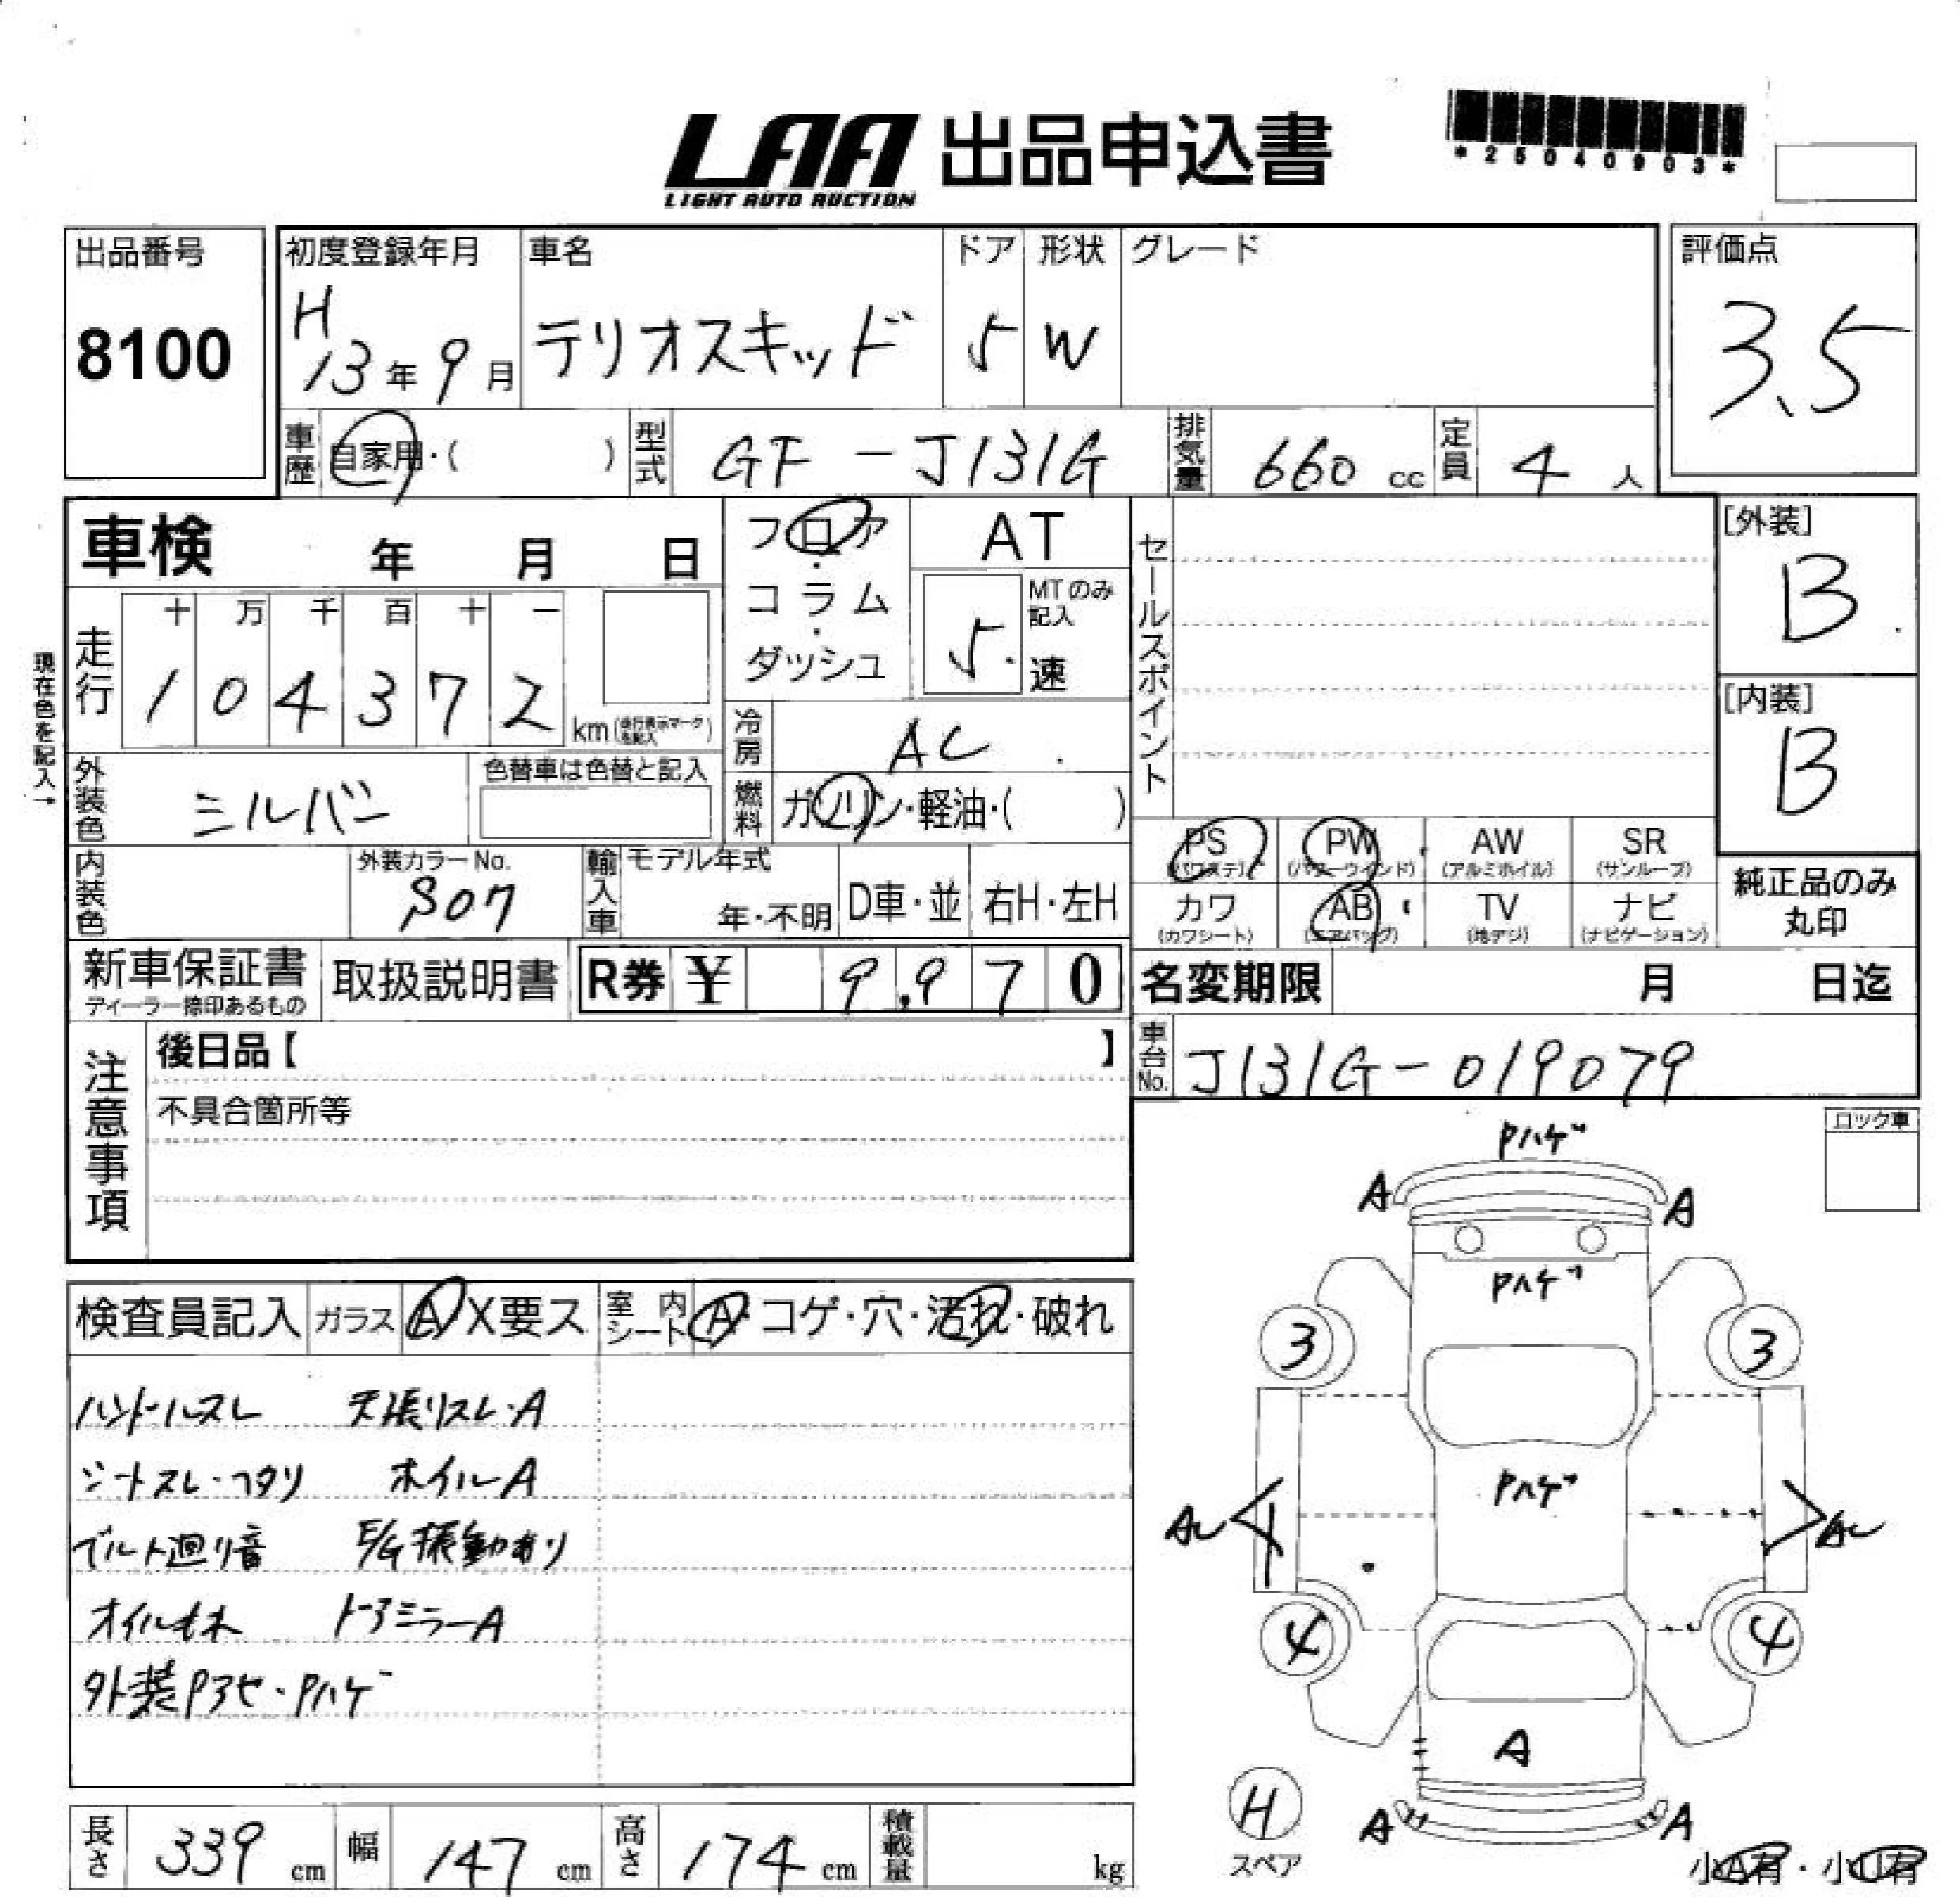 LAA 出品申込書
LIGHT AUTO AUCTION
*25040903*
出品番号 初度登録年月 車名 ドア 形状 グレード 評価点
8100 H13年9月 テリオスキッド 5 W 3.5
車歴 自家用・( ) 型式 GF-J131G 排気量 660cc 定員 4人
車検 年 月 日 フロア・コラム・ダッシュ AT セールスポイント [外装]
B
MTのみ記入 5速
現在色を記入→
走行 十 万 千 百 十 一
104372 km
[内装]
B
冷房 AC
外装色 シルバー 色替車は色替と記入 燃料 ガソリン・軽油・( )
PS (パワステ) PW (パワーウインド) AW (アルミホイル) SR (サンルーフ)
内装色 外装カラーNo. S07 輸入車 モデル年式 年・不明 D車・並 右H・左H
カワ (カワシート) AB (エアバッグ) TV (地デジ) ナビ (ナビゲーション)
純正品のみ
丸印
新車保証書 取扱説明書 R券 ¥ 9,970 名変期限 月 日迄
ディーラー捺印あるもの
注意事項 後日品【 】 車台No. J131G-019079
不具合箇所等
ロック車
Pハゲ
A A
Pハゲ
検査員記入 ガラス A X要ス 室内シート A・コゲ・穴・汚れ・破れ
3 3
ハンドルスレ 天張リスレ・A
シートスレ・ヘタリ ホイルA
Pハゲ
ベルト廻り音 E/G振動有り
オイルモレ ドアミラーA
4 4
外装Pヤセ・Pハゲ
A
H
スペア
A A
長さ 339cm 幅 147cm 高さ 174cm 積載量 kg
小A有・小U有